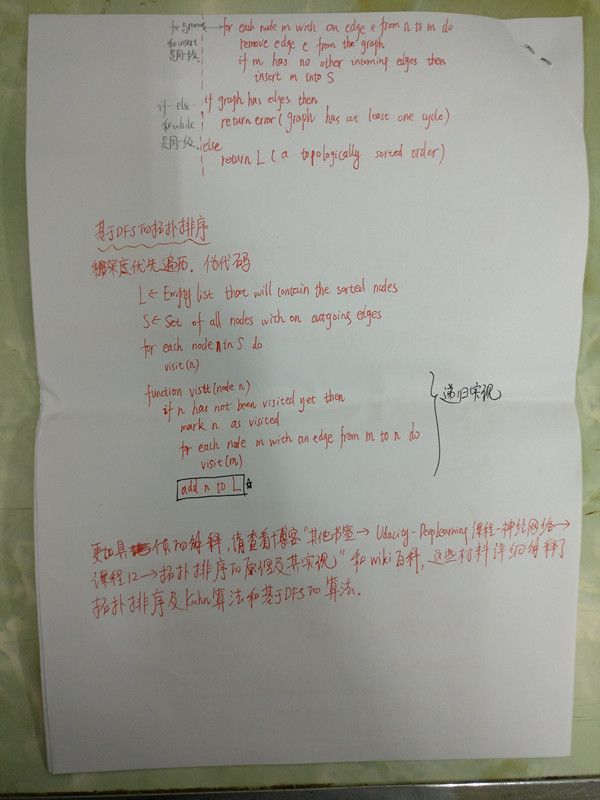 for each node m with an edge e from n to m do
remove edge e from the graph
if m has no other incoming edges then
insert m into S
if else
和while
是同一级.
if graph has edges then
return error (graph has at least one cycle)
else
return L (a topologically sorted order)
基于DFS的拓扑排序
深度优先遍历. 伪代码
L ← Empty list that will contain the sorted nodes
S ← Set of all nodes with no outgoing edges
for each node n in S do
visit(n)
function visit(node n)
if n has not been visited yet then
mark n as visited
for each node m with an edge from m to n do
visit(m)
add n to L
递归实现
更加具体的解释,请查看博客"其他书签→ Udacity-Deeplearning课程-神经网络→
课程12→拓扑排序的原理及其实现"和wiki百科,这些材料详细解释了
拓扑排序及Kahn算法和基于DFS的算法.